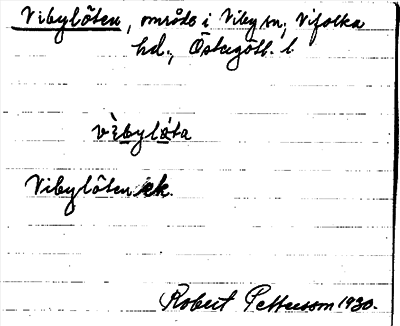 Vibylöten, område i Viby sn, Vifolka
hd., Östergötl. l
vìbylǿta
Vibylöten ek.
Robert Pettersson 1930.